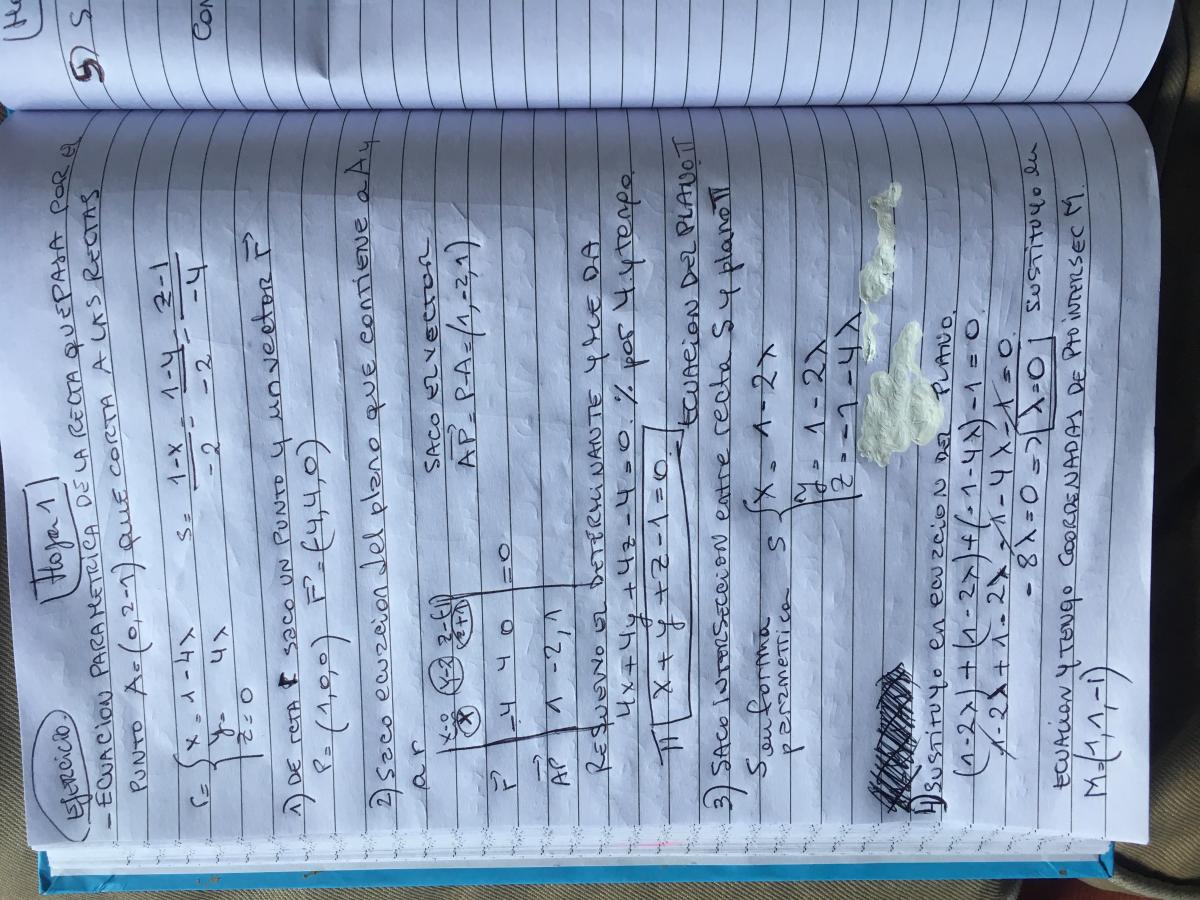 Hoja 1
EJERCICIO.
- ECUACION PARAMETRICA DE LA RECTA QUE PASA POR EL
PUNTO A=(0,2-1) que CORTA A LAS RECTAS
r= { x = 1-4λ
y= 4λ
z=0
s= 1-x/-2 = 1-y/-2 = z-1/-4
1) DE RECTA r SACO UN PUNTO Y UN VECTOR r⃗
P=(1,0,0) r⃗=(-4,4,0)
2) Saco ecuacion del plano que contiene a A y
a r
SACO el VECTOR
AP⃗= P-A=(1,-2,1)
x-0 y-2 z-(-1)
x z+1
r⃗ -4 4 0 =0
AP⃗ 1 -2, 1
RESUELVO el DETERMINANTE Y ME DA
4x+4y+4z-4=0. % por 4 y tengo.
π x+y+z-1=0. ECUACION DEL PLANO π
3) SACO INTERSECCION entre recta S y plano π
S en forma
parametica
S { x = 1-2λ
y = 1-2λ
z = -1-4λ
4) SUSTITUYO en ecuacion DEL PLANO.
(1-2λ)+(1-2λ)+(-1-4λ)-1=0.
1-2λ+1-2λ-1-4λ-1=0
-8λ=0 => λ=0 SUSTITUYO en
ECUACION Y TENGO COORDENADAS DE PTO INTERSEC M.
M=(1,1,-1)
5) S
CON